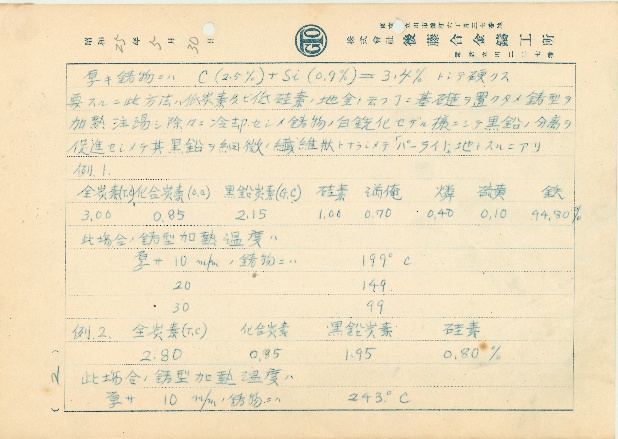 昭和25年5月30日
GTO
株式會社 後藤合金鑄工所
厚キ鋳物ニハ C(2.5%)+Si(0.9%)=3.4% トシテ硬クス
要スルニ此方法ハ低炭素ニシテ低硅素ノ地金ト云フコトニ基礎ヲ置クタメ鋳型ヲ
加熱注湯シ除々ニ冷却セシメ鋳物ノ白銑化セザル様ニシテ黒鉛ノ分離ヲ
促進セシメテ其黒鉛ヲ細微ノ繊維状トナラシメテ「パーライト」地トスルニアリ
例.1.
全炭素(T.C) 化合炭素(C.C) 黒鉛炭素(G.C) 硅素 満俺 燐 硫黄 鉄
3.00 0.85 2.15 1.00 0.70 0.40 0.10 94.80%
此場合ノ鋳型加熱温度ハ
厚サ 10 m/m ノ鋳物ニハ 199°C
20 149
30 99
例.2. 全炭素(T.C) 化合炭素 黒鉛炭素 硅素
2.80 0.85 1.95 0.80%
此場合ノ鋳型加熱温度ハ
厚サ 10 m/m ノ鋳物ニハ 243°C
(2)